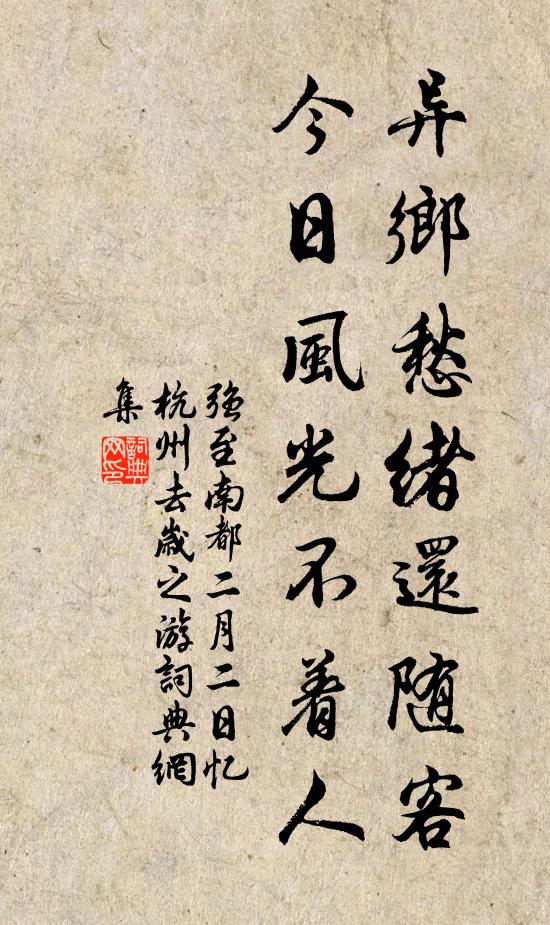 异鄉愁緒還随客
今日風光不着人
强至南都二月二日忆
杭州去歲之游詞典網
集
詞典
网印